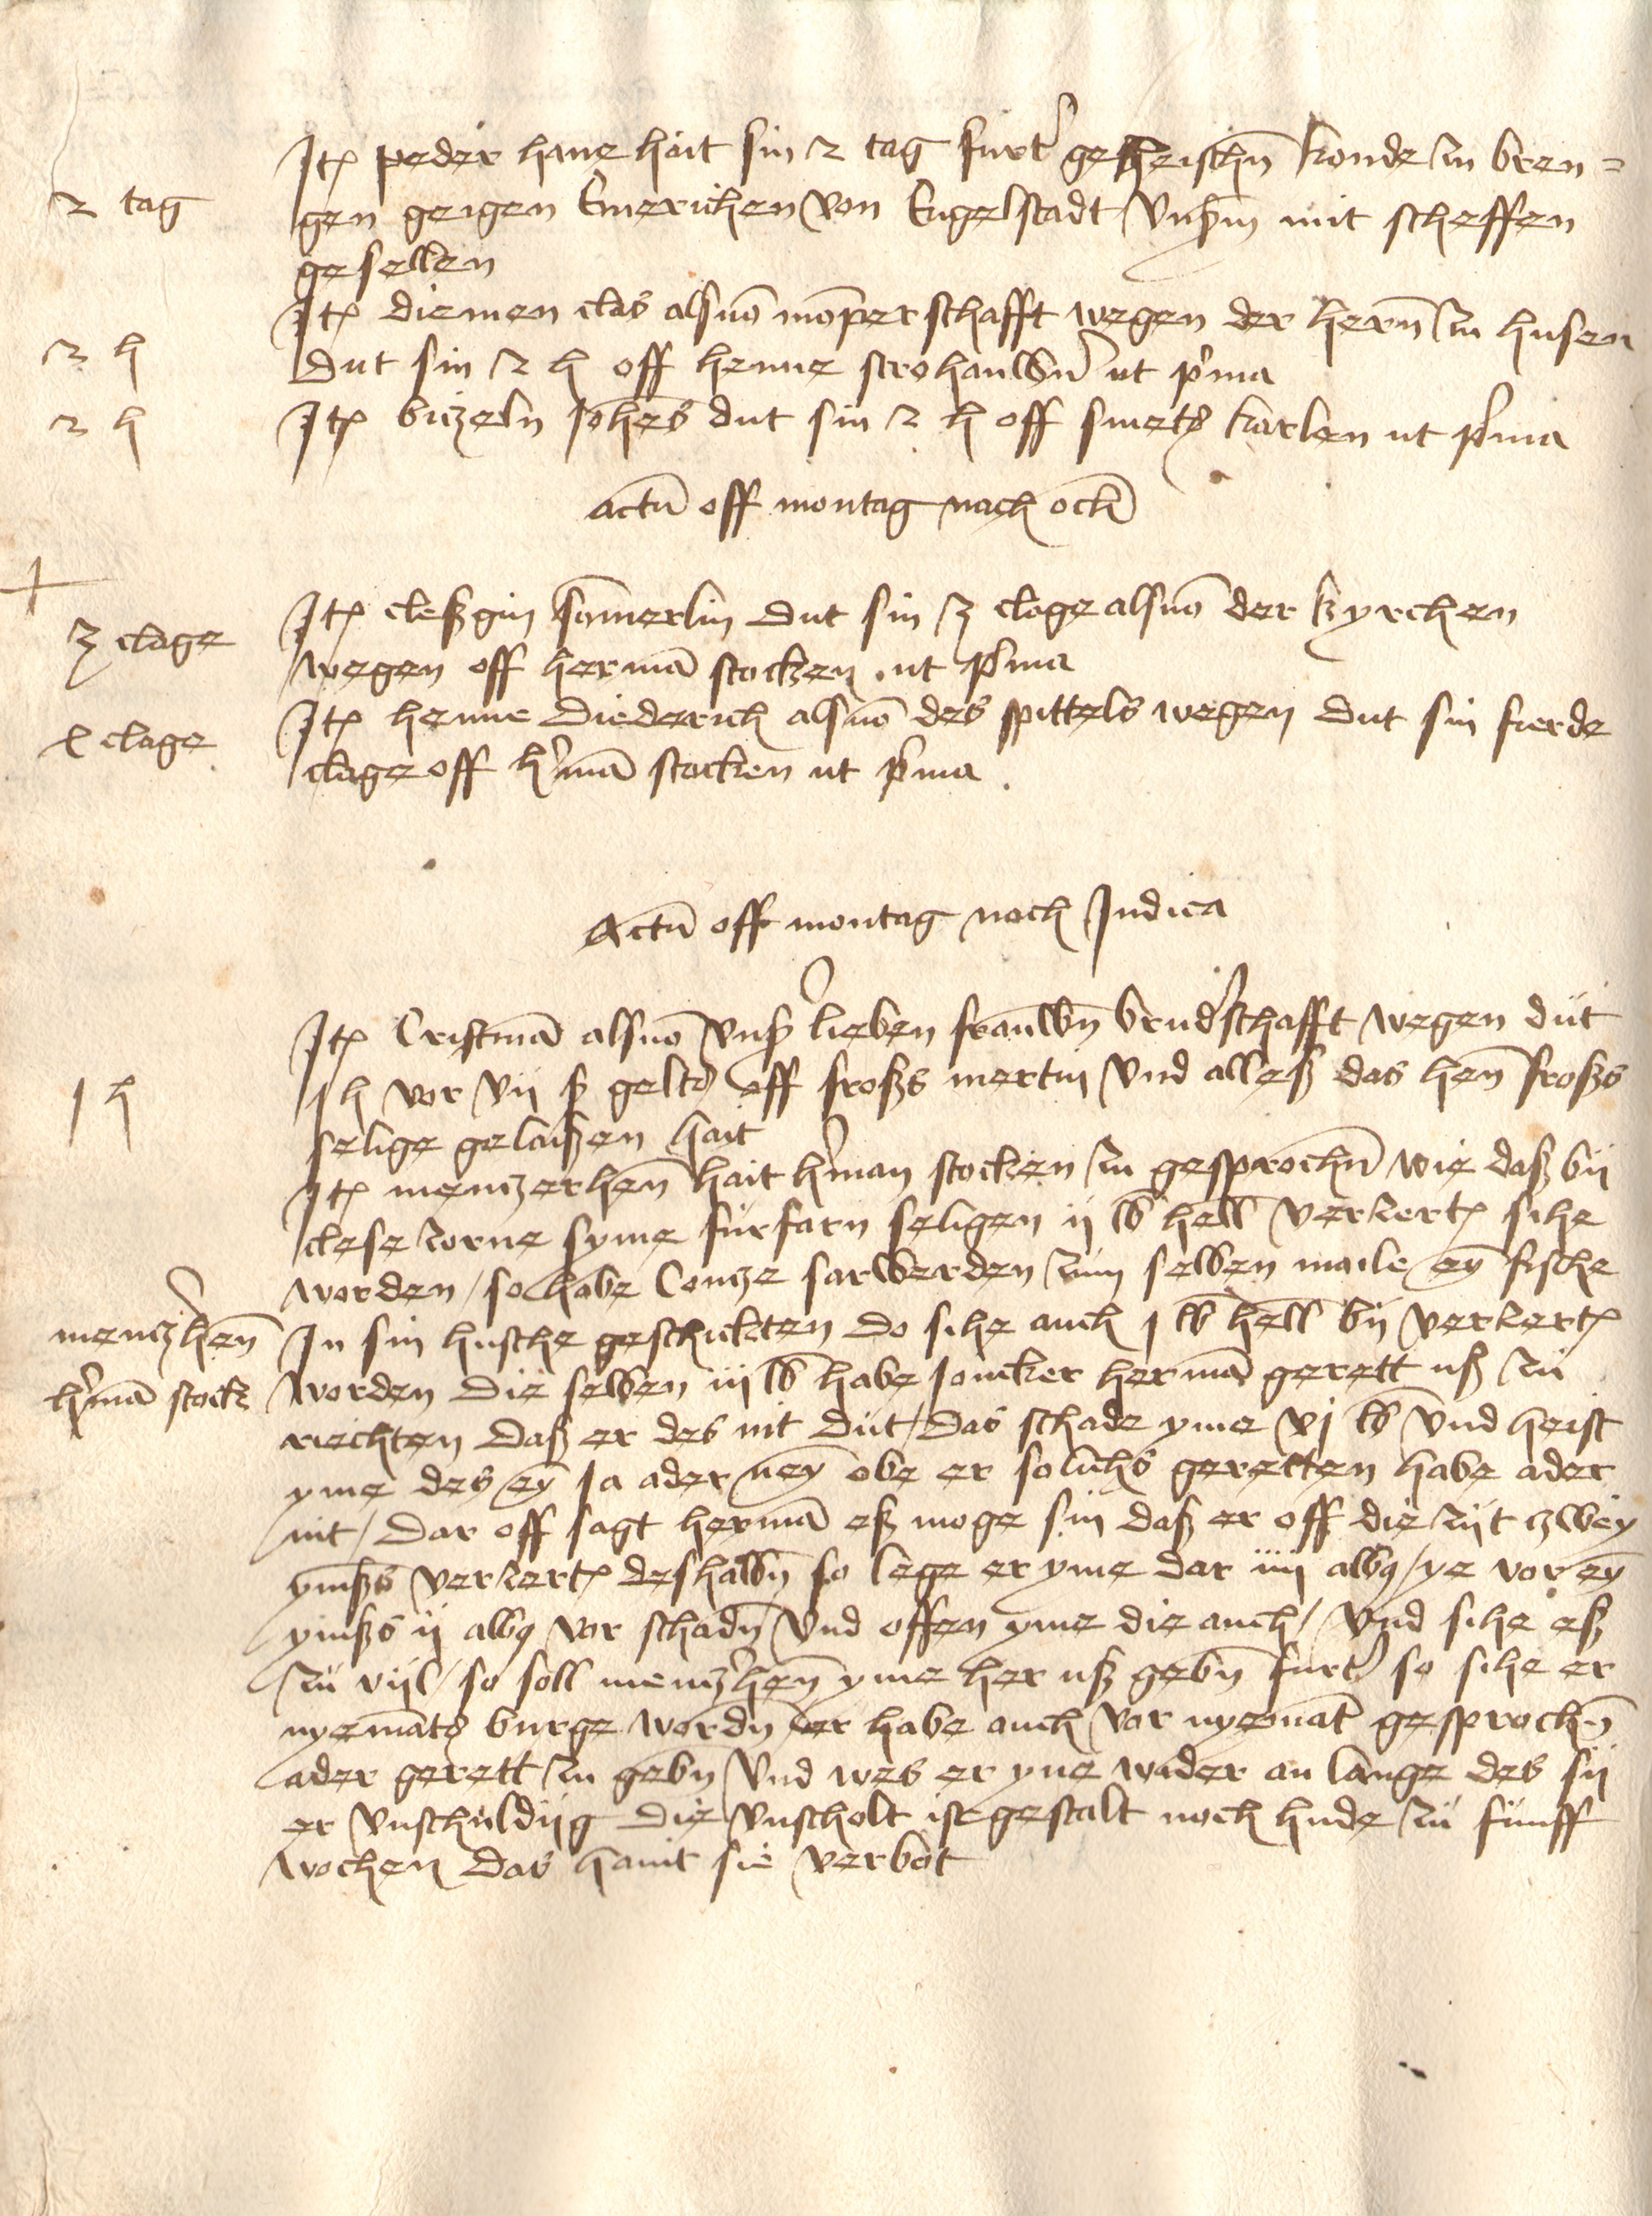 2 tag
Itē peder hane hait sin 2 tag furt' geheischn̄ konde zu bren=
gen geigen Emerichen von Engelstadt vnßm̄ mit scheffen
gesellen
2 h
Itē diemen clas als vō mōperschafft wegen der hern̄ zu husen
dut sin 2 h off henne strohauwern̄ ut p'ma
2 h
Itē biczeln Joh̄es dut sin 2 h off smets karlen ut p'ma
Actū off montag nach ocl̄i
3 clage
Itē cleßgin som̄erlin dut sin 3 clage als vō der kyrchen
wegen off hermā stocken ut p'ma
4 clage
Itē henne Diederich als vō des spittels wegen dut sin fierde
clage off h'mā stocken ut p'ma
Actū off montag nach Judica
1 h
Itē Cristmā als vō vnß' lieben frauwn̄ brud'schafft wegen dut
1 h vor vij ß gelts off froßs mertin vnd alleß das hen̄ froßs
selige gelaißen hait
mencz'hen̄
h'mā stock
Itē menczerhen̄ hait h'man stocken zu gesprochn̄ wie daß bij
clese zorne syme furfarn seligen ij lb hell' verzertē sihe
worden / so habe Concze sarwerden zum selben maile eȳ fische
In sin husche geschickten do sihe auch j lb hell' bij verzertē
worden die selben iij lb habe joncker hermā gerett uß zu
riechten daß er des nit dut / das schade yme vj lb vnd heist
yme des eȳ ja ader neȳ obe er soluchs geretten habe ader
nit / Dar off sagt hermā eß moge sin daß er off die zijt zwey
ymßs verzertē deshalbn̄ so lege er yme dar iiij albꝯ / ye vor eȳ
ymßs ij albꝯ vor schadn̄ vnd offen yme die auch / vnd sihe eß
zu vijl / so soll mencz'hen̄ yme her uß gebn̄ furt' so sihe er
nyemāts burge wordn̄ er habe auch vor nyemāt gesprochn̄
ader gerett zu gebn̄ vnd wes er yne wider an lange des sij
er vnschuldijg die vnscholt ist gestalt noch hude zu funff
wochen das haint sie verbot